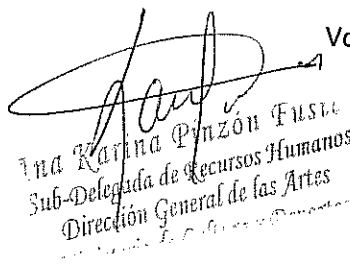 Vo
Ana Karina Pinzón Fus
Sub-Delegada de Recursos Humanos
Dirección General de las Artes